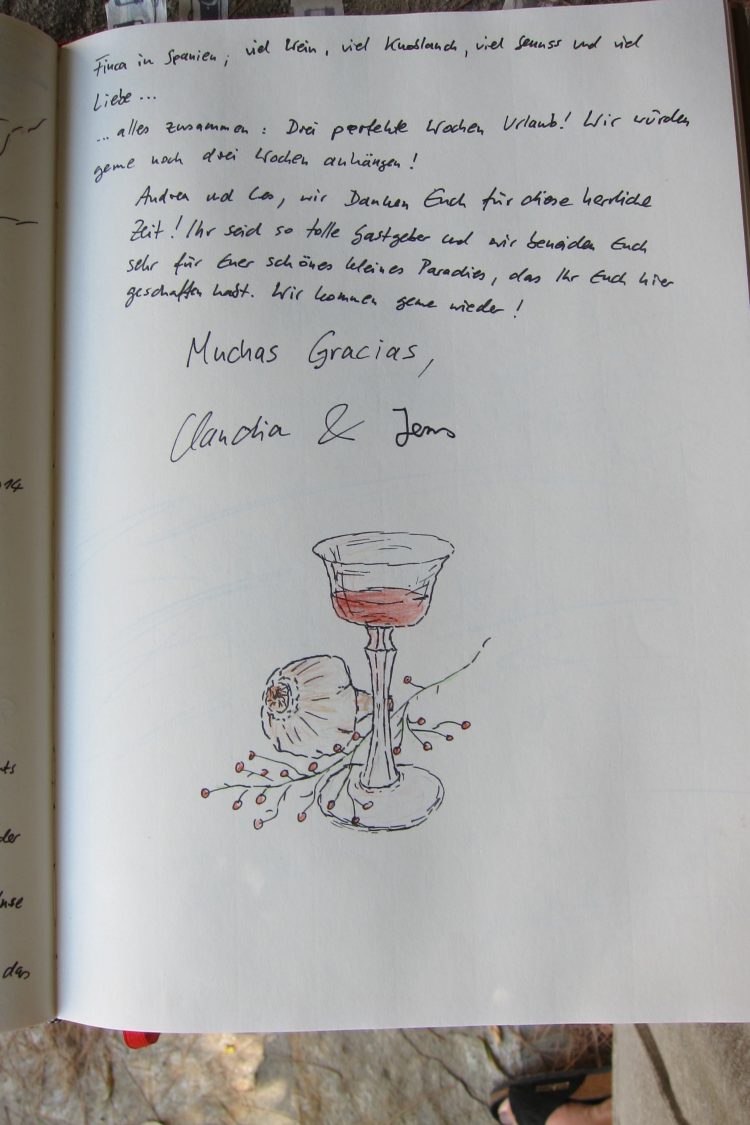 Finca in Spanien; viel Wein, viel Knoblauch, viel Genuss und viel
Liebe...
...alles zusammen: Drei perfekte Wochen Urlaub! Wir würden
gerne noch drei Wochen anhängen!
Andrea und Leo, wir Danken Euch für diese herrliche
Zeit! Ihr seid so tolle Gastgeber und wir beneiden Euch
sehr für Euer schönes kleines Paradies, das Ihr Euch hier
geschaffen habt. Wir kommen gerne wieder!
Muchas Gracias,
Claudia & Jens
das